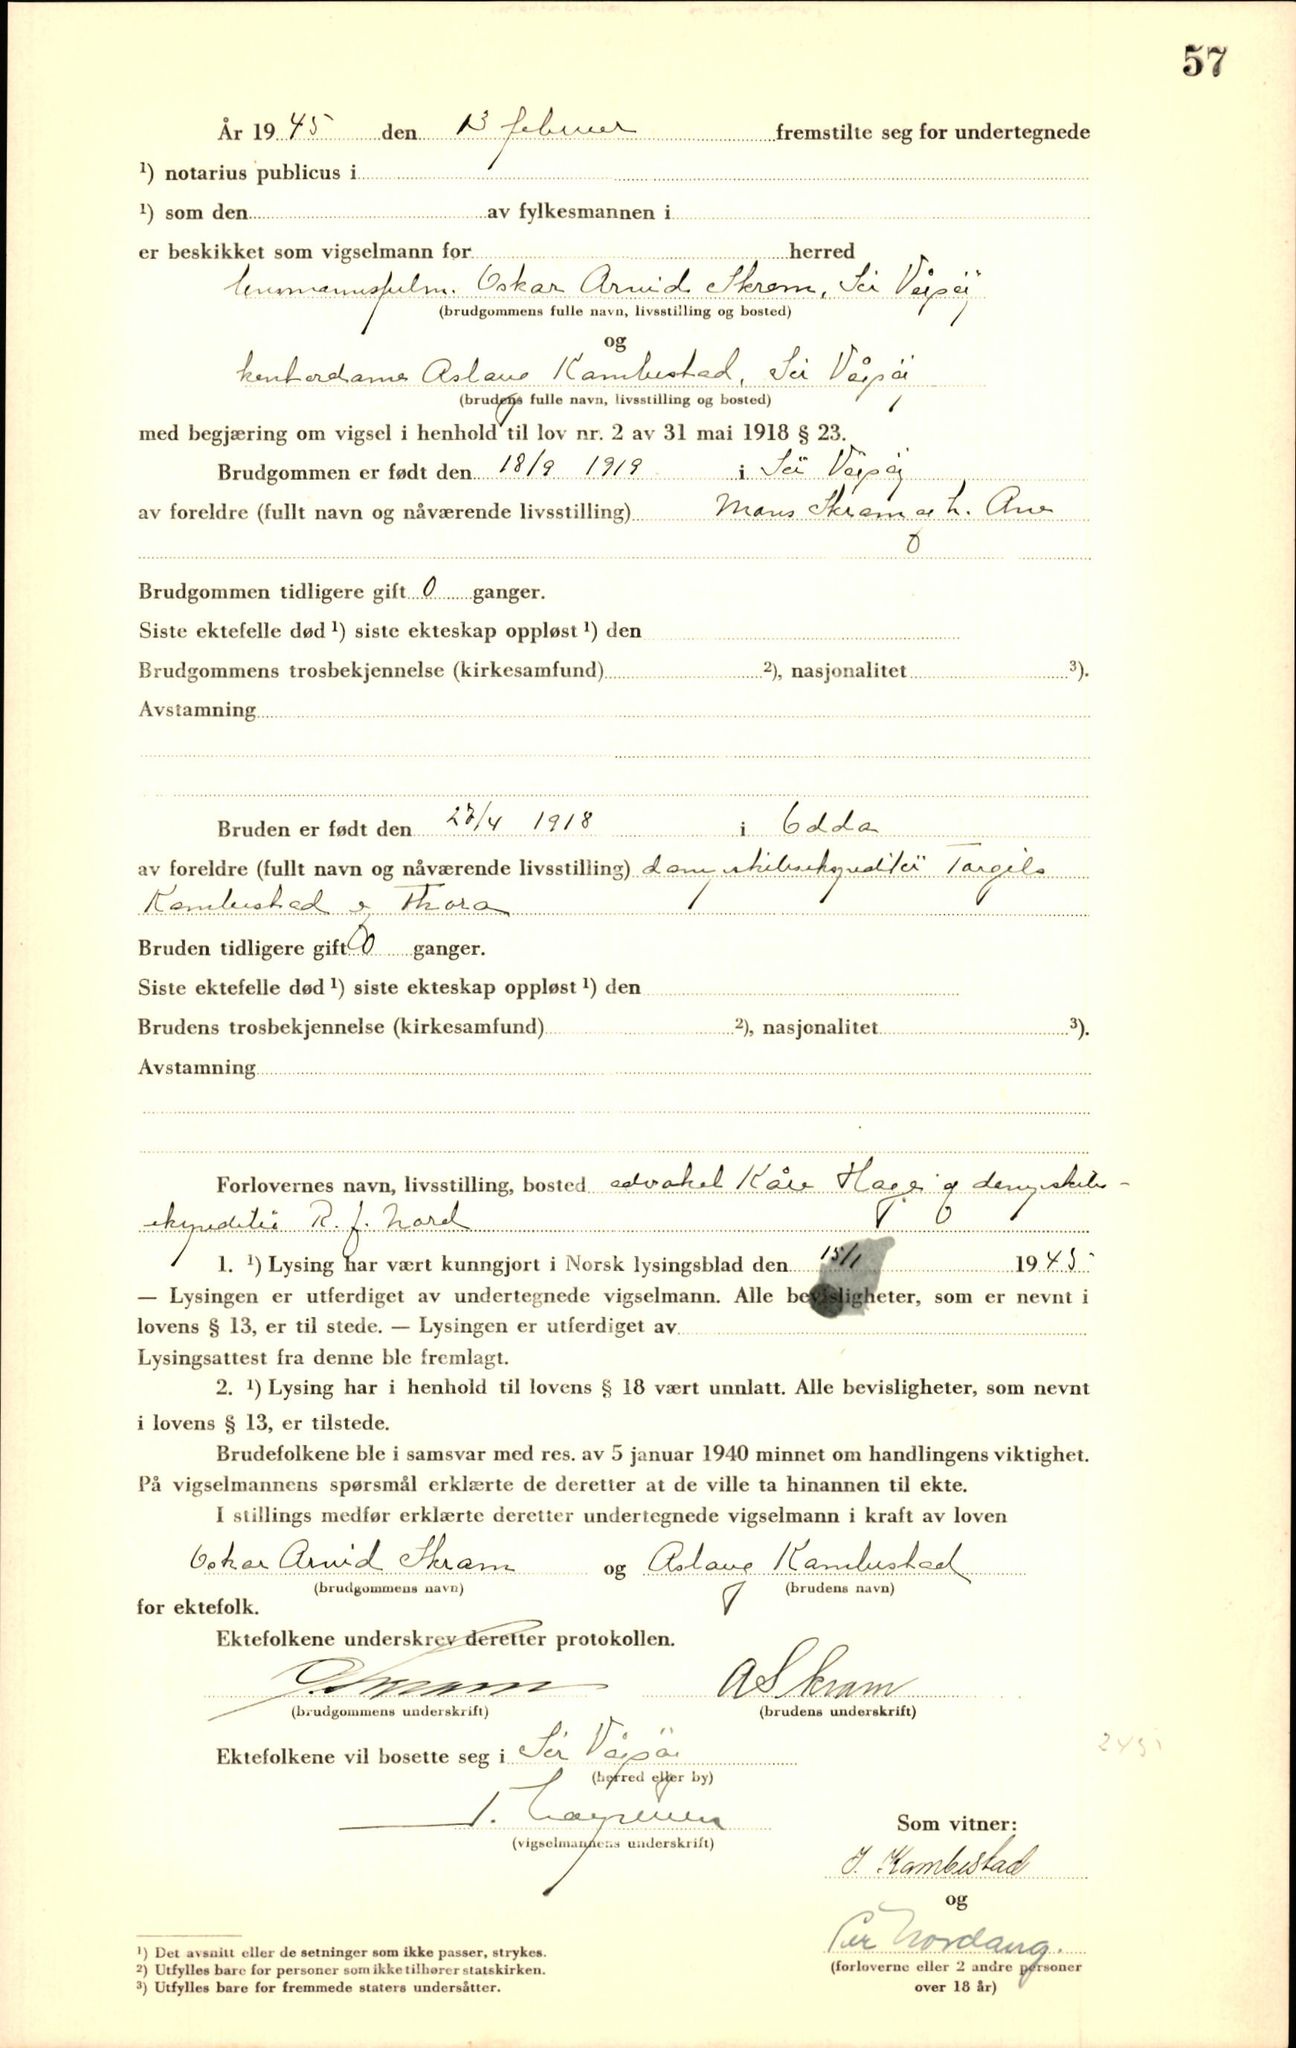 57
År 1945 den 13 februar fremstilte seg for undertegnede
¹) notarius publicus i
¹) som den av fylkesmannen i
er beskikket som vigselmann for herred
lensmannsfulm. Oskar Arvid Skram, Sør Vågsøy
(brudgommens fulle navn, livsstilling og bosted)
og
kontordame Aslaug Kambestad, Sør Vågsøy
(brudens fulle navn, livsstilling og bosted)
med begjæring om vigsel i henhold til lov nr. 2 av 31 mai 1918 § 23.
Brudgommen er født den 18/9 1919 i Sør Vågsøy
av foreldre (fullt navn og nåværende livsstilling) Mons Skram og h. Ane
Brudgommen tidligere gift 0 ganger.
Siste ektefelle død ¹) siste ekteskap oppløst ¹) den
Brudgommens trosbekjennelse (kirkesamfund) ²), nasjonalitet ³).
Avstamning
Bruden er født den /4 1918 i Odda
av foreldre (fullt navn og nåværende livsstilling) dampskibsekspeditør Torgils
Kambestad og Thora
Bruden tidligere gift 0 ganger.
Siste ektefelle død ¹) siste ekteskap oppløst ¹) den
Brudens trosbekjennelse (kirkesamfund) ²), nasjonalitet ³).
Avstamning
Forlovernes navn, livsstilling, bosted advokat Kåre Hage og dampskibs-
ekspeditør R. J. Nord
1. ¹) Lysing har vært kunngjort i Norsk lysingsblad den 15/1 1945
— Lysingen er utferdiget av undertegnede vigselmann. Alle bevisligheter, som er nevnt i
lovens § 13, er til stede. — Lysingen er utferdiget av
Lysingsattest fra denne ble fremlagt.
2. ¹) Lysing har i henhold til lovens § 18 vært unnlatt. Alle bevisligheter, som nevnt
i lovens § 13, er tilstede.
Brudefolkene ble i samsvar med res. av 5 januar 1940 minnet om handlingens viktighet.
På vigselmannens spørsmål erklærte de deretter at de ville ta hinannen til ekte.
I stillings medfør erklærte deretter undertegnede vigselmann i kraft av loven
Oskar Arvid Skram og Aslaug Kambestad
(brudgommens navn) (brudens navn)
for ektefolk.
Ektefolkene underskrev deretter protokollen.
O. Skram A S Skram
(brudgommens underskrift) (brudens underskrift)
Ektefolkene vil bosette seg i Sør Vågsøy
(herred eller by)
(vigselmannens underskrift)
Som vitner:
J. Kambestad
og
Per Nordang.
(forloverne eller 2 andre personer
over 18 år)
¹) Det avsnitt eller de setninger som ikke passer, strykes.
²) Utfylles bare for personer som ikke tilhører statskirken.
³) Utfylles bare for fremmede staters undersåtter.